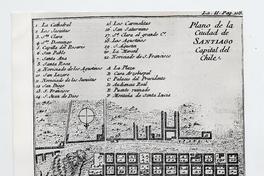 Lá. II. Pag. 508.
Plano de la
Ciudad de
SANTIAGO
Capital del
Chile.
1 La Cathedral
2 Los Jesuitas
3 Sta. Clara
4 Sto. Domingo
5 Capilla del Rosario
6 San Pablo
7 Santa Ana
8 Santa Rosa
9 Noviciado de los Agustinos
10 San Lazaro
11 Noviciado de los Jesuitas
12 San Diego
13 S. Francisco
14 S. Juan de Dios
15 Los Carmelitas
16 San Saturnino
17 Sta. Clara
18 Los Agustinos
19 S. Agustin
20 La Merced
21 Noviciado de S. Francisco
A La Plaza
B Casa Arzobispal
C Palacio del Presidente
D Audiencia Real
E Puente ruinado
F Montaña de Santa Lucia